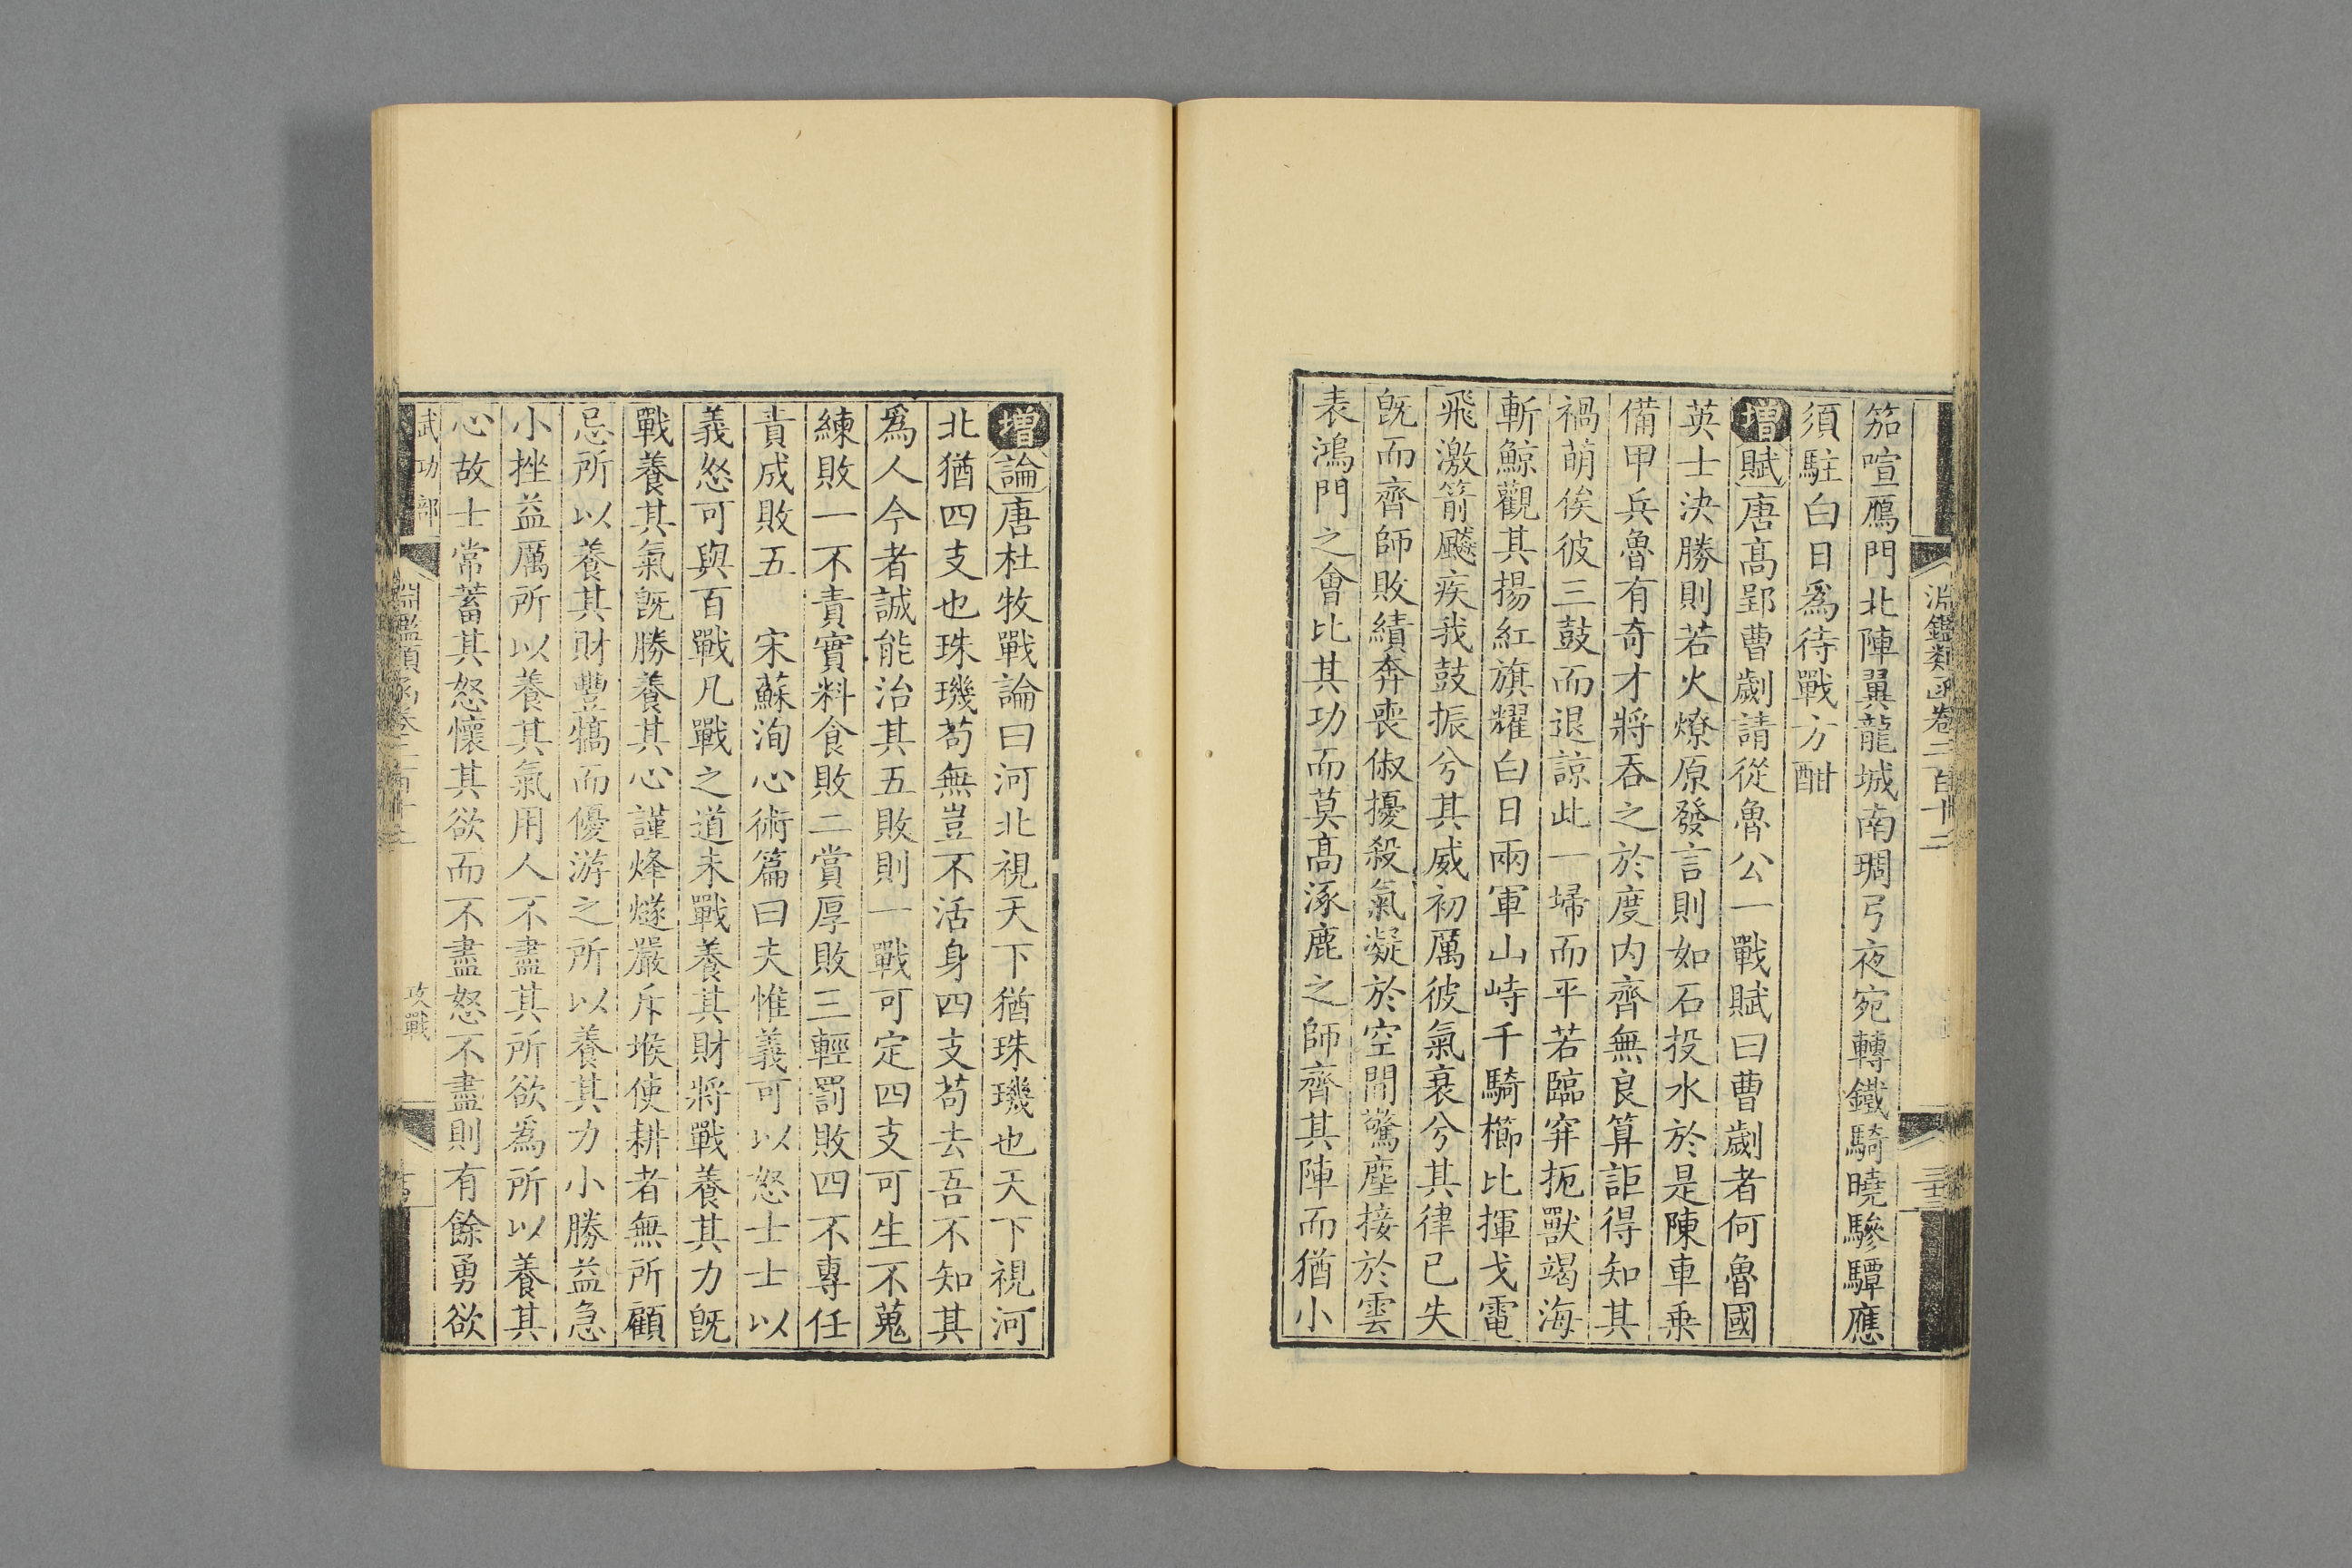 淵鑑類函卷二百十二
笳喧鴈門北陣翼龍城南琱弓夜宛轉鐵騎曉驂驔應
須駐白日爲待戰方酣
增賦唐高郢曹劌請從魯公一戰賦曰曹劌者何魯國
英士決勝則若火燎原發言則如石投水於是陳車乗
備甲兵魯有奇才將吞之於度内齊無良算詎得知其
禍萌俟彼三鼓而退諒此一埽而平若臨穽扼獸竭海
斬鯨觀其揚紅旗耀白日兩軍山峙千騎櫛比揮戈電
飛激箭飈疾我鼓振兮其威初厲彼氣衰兮其律已失
旣而齊師敗績奔喪俶擾殺氣凝於空間驚塵接於雲
表鴻門之會比其功而莫髙涿鹿之師齊其陣而猶小
增論唐杜牧戰論曰河北視天下猶珠璣也天下視河
北猶四支也珠璣苟無豈不活身四支苟去吾不知其
爲人今者誠能治其五敗則一戰可定四支可生不蒐
練敗一不責實料食敗二賞厚敗三輕罰敗四不專任
責成敗五　宋蘇洵心術篇曰夫惟義可以怒士士以
義怒可與百戰凡戰之道未戰養其財將戰養其力旣
戰養其氣旣勝養其心謹烽燧嚴斥堠使耕者無所顧
忌所以養其財豐犒而優游之所以養其力小勝益急
小挫益厲所以養其氣用人不盡其所欲爲所以養其
心故士常蓄其怒懷其欲而不盡怒不盡則有餘勇欲
武功部　淵鑑類函卷二百十二　攻戰